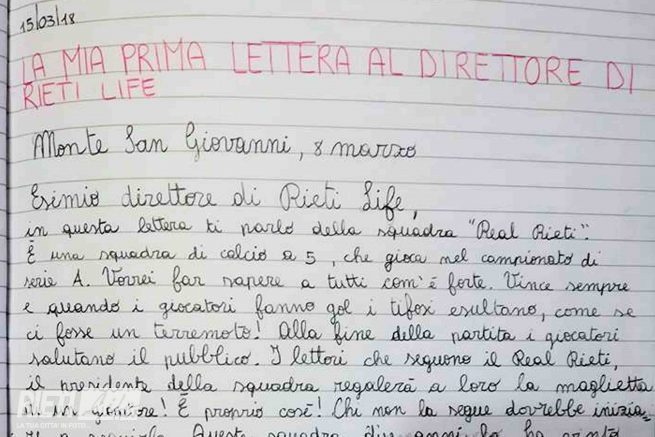 15/03/18
LA MIA PRIMA LETTERA AL DIRETTORE DI
RIETI LIFE
Monte San Giovanni, 8 marzo
Esimio direttore di Rieti Life,
in questa lettera ti parlo della squadra "Real Rieti".
È una squadra di calcio a 5, che gioca nel campionato di
serie A. Vorrei far sapere a tutti com'è forte. Vince sempre
e quando i giocatori fanno gol i tifosi esultano, come se
ci fosse un terremoto! Alla fine della partita i giocatori
salutano il pubblico. I lettori che seguono il Real Rieti,
il presidente della squadra regalerà a loro la maglietta
di un giocatore! È proprio così! Chi non la segue dovrebbe inizia-
re a seguirla. Questa squadra due anni fa ha vinto
RIETI LIFE
LA TUA CITTA' IN FOTO...